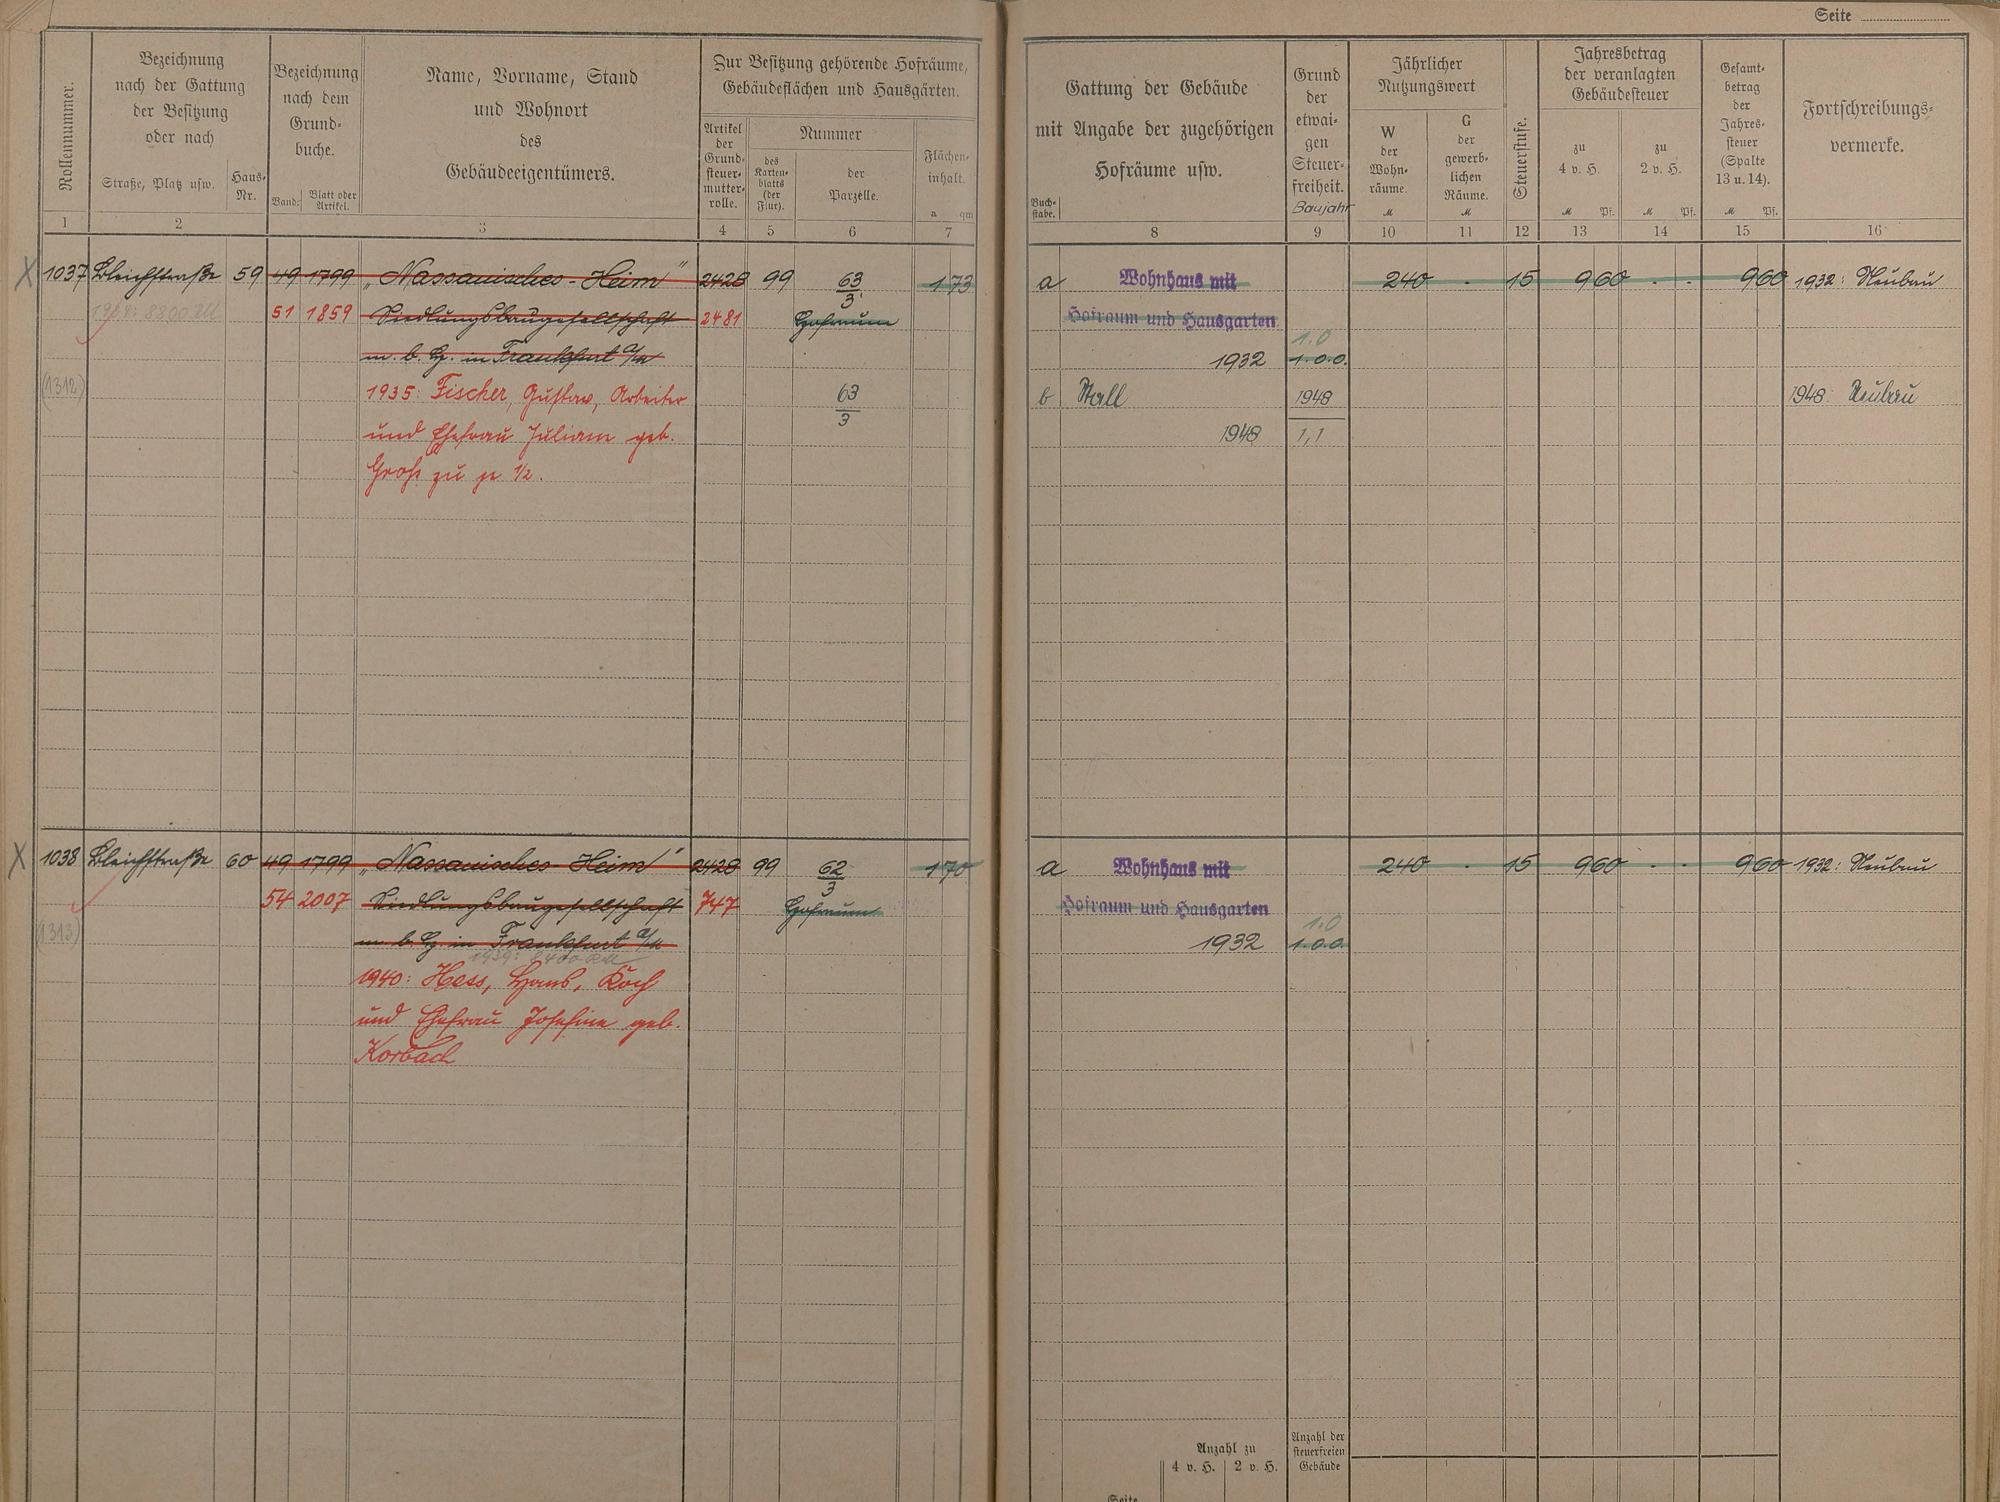 Seite
Rollennummer.
Bezeichnung
nach der Gattung
der Besitzung
oder nach
Straße, Platz usw.
Haus-
Nr.
Bezeichnung
nach dem
Grund-
buche.
Band:
Blatt oder
Artikel.
Name, Vorname, Stand
und Wohnort
des
Gebäudeeigentümers.
Zur Besitzung gehörende Hofräume,
Gebäudeflächen und Hausgärten.
Artikel
der
Grund-
steuer-
mutter-
rolle.
Nummer
des
Karten-
blatts
(der
Flur).
der
Parzelle.
Flächen-
inhalt.
a qm
Buch-
stabe.
Gattung der Gebäude
mit Angabe der zugehörigen
Hofräume usw.
Grund
der
etwai-
gen
Steuer-
freiheit.
Baujahr
Jährlicher
Nutzungswert
W
der
Wohn-
räume.
M
G
der
gewerb-
lichen
Räume.
M
Steuerstufe.
Jahresbetrag
der veranlagten
Gebäudesteuer
zu
4 v. H.
M Pf.
zu
2 v. H.
M Pf.
Gesamt-
betrag
der
Jahres-
steuer
(Spalte
13 u. 14).
M Pf.
Fortschreibungs-
vermerke.
1 2 3 4 5 6 7 8 9 10 11 12 13 14 15 16
X 1037 Bleichstraße 59 49 1799 „Nassauisches-Heim" 2428 99 63/3 173 a Wohnhaus mit 240 - 15 960 - - 960 1932: Neubau
51 1859 Siedlungsbaugesellschaft 2481 Hofraum Hofraum und Hausgarten
m. b. H. in Frankfurt a/M 1932 1.0 1.0.0.
(1312) 1935: Fischer, Gustav, Arbeiter 63/3 b Stall 1948 1948 Neubau
und Ehefrau Juliane geb. 1948 1,1
Groß zu je 1/2.
X 1038 Bleichstraße 60 49 1799 „Nassauisches-Heim" 2428 99 62/3 170 a Wohnhaus mit 240 - 15 960 - - 960 1932: Neubau
54 2007 Siedlungsbaugesellschaft 747 Hofraum Hofraum und Hausgarten
(1313) m. b. H. in Frankfurt a/M 1932 1.0 1.0.0.
1940: Hess, Hans, Koch
und Ehefrau Josefine geb.
Korbach
Anzahl zu
4 v. H. 2 v. H.
Anzahl der
steuerfreien
Gebäude
Seite